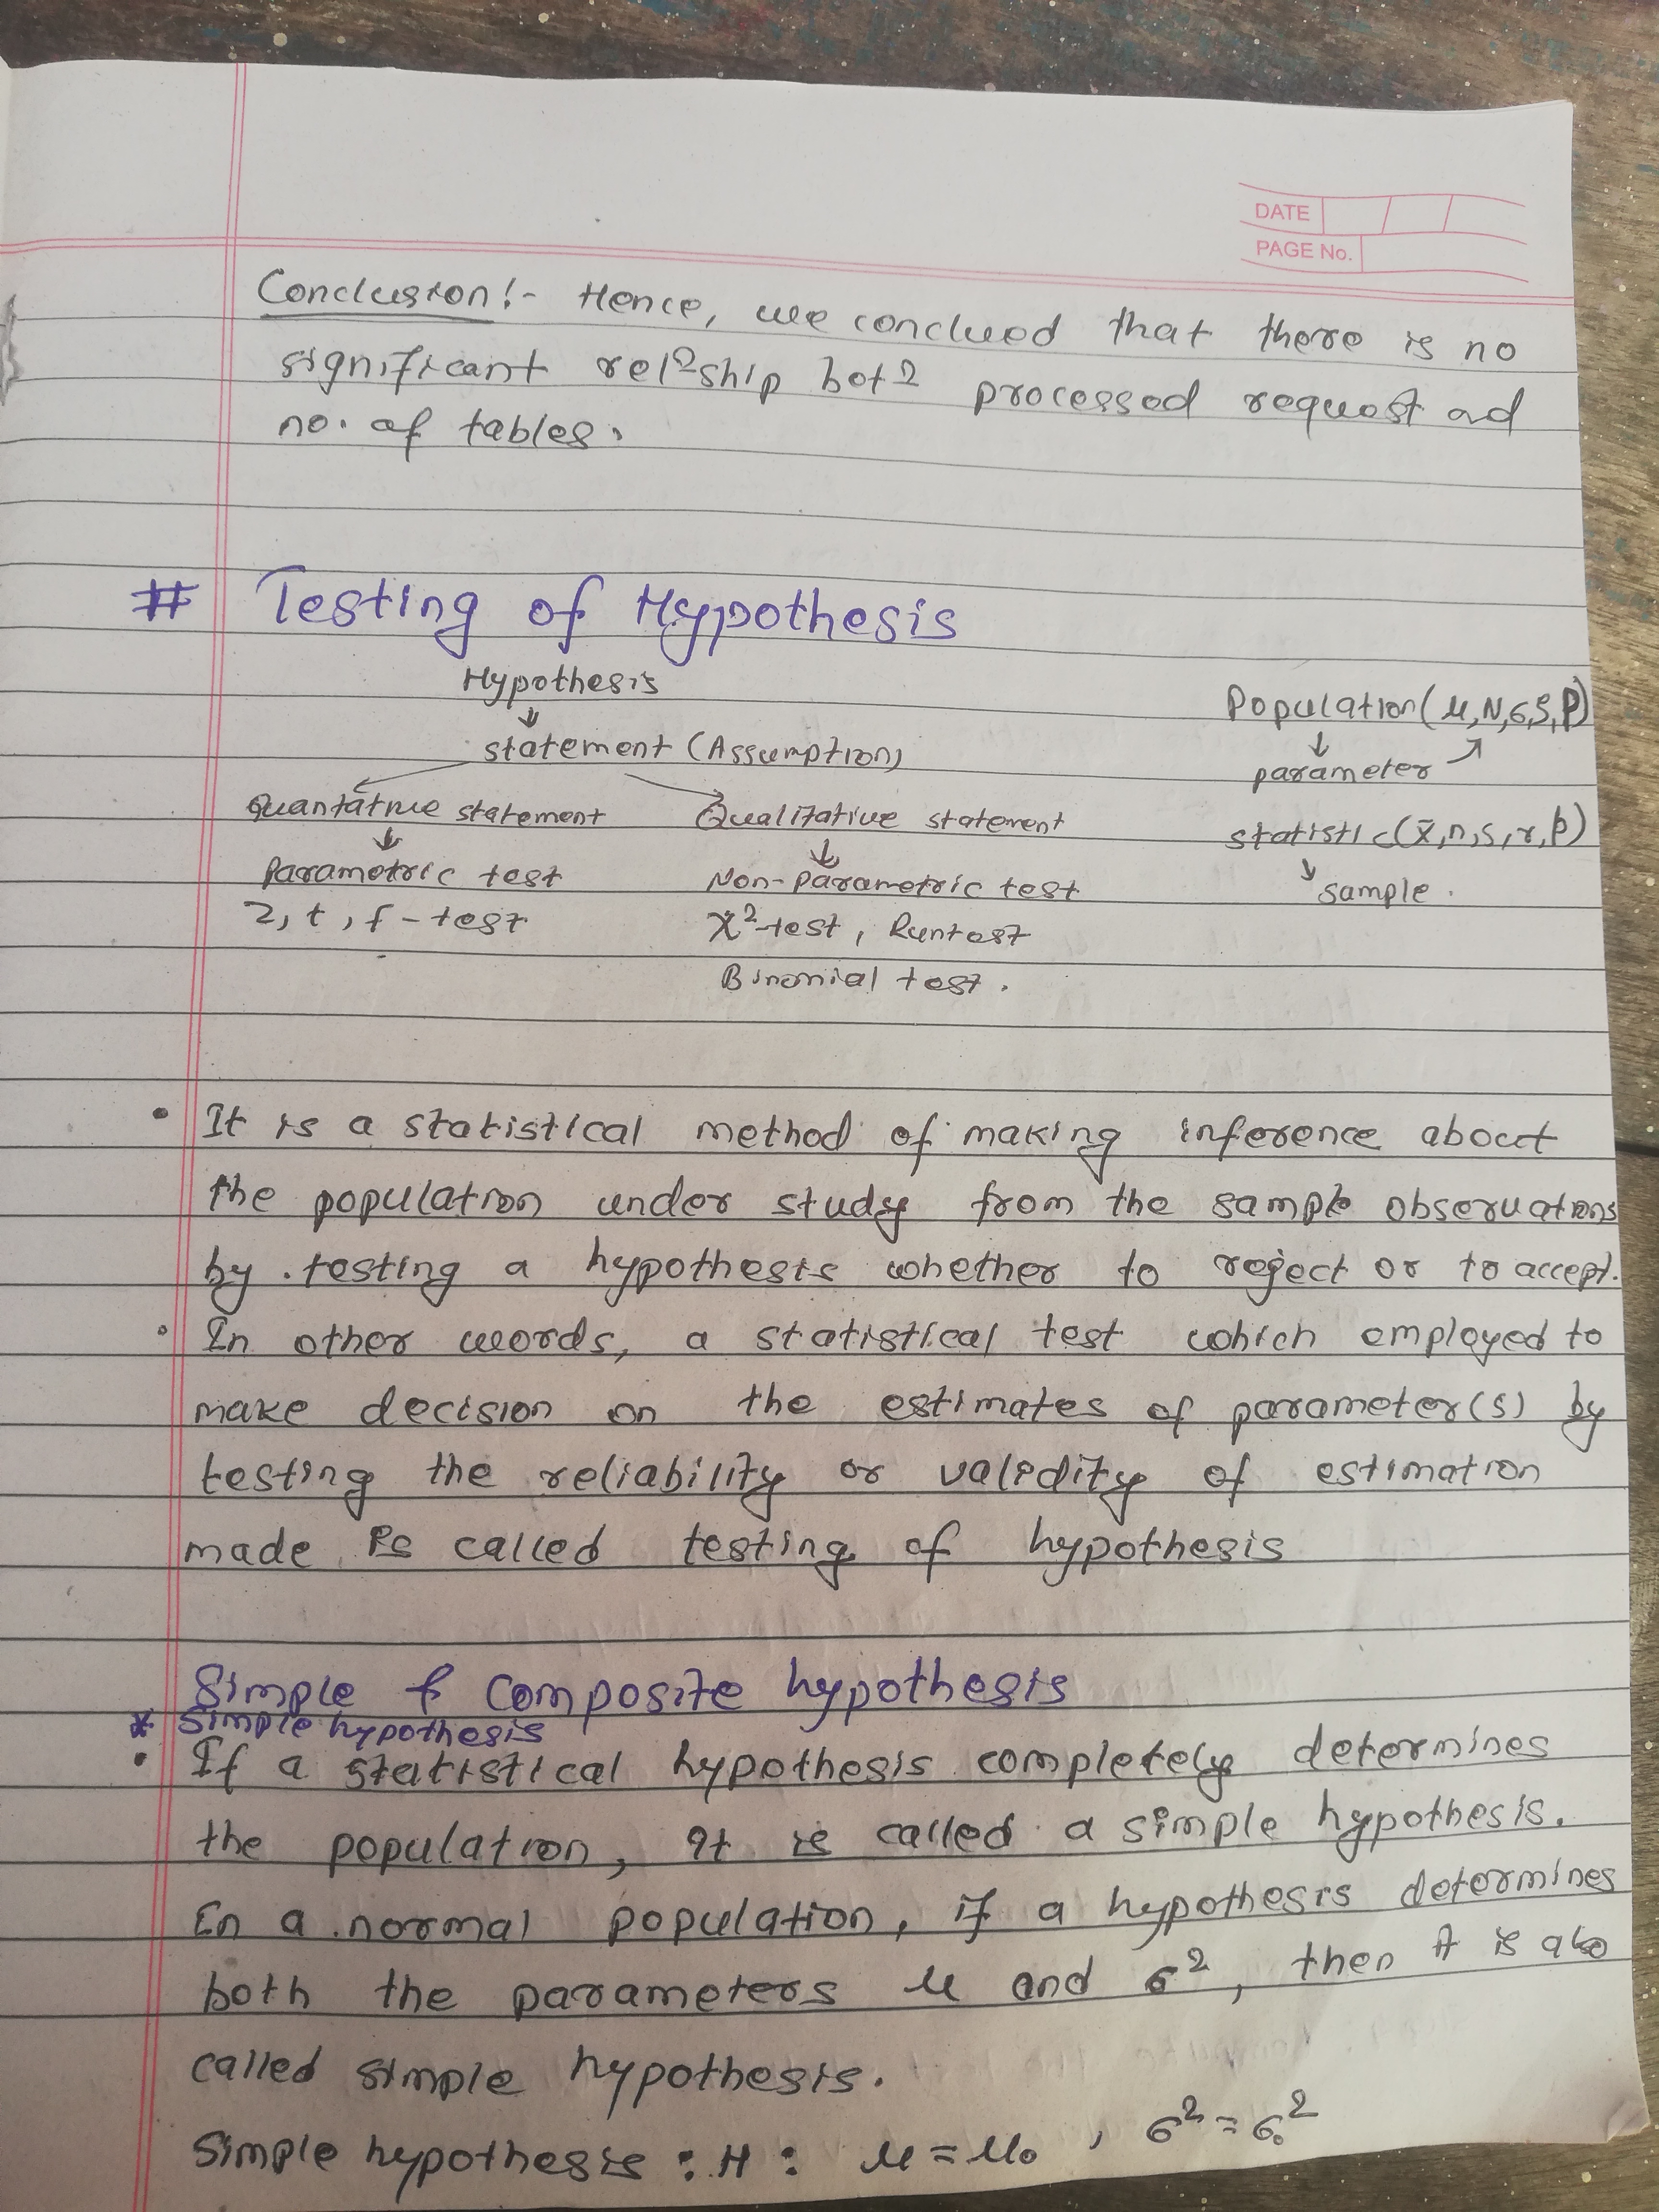 DATE
PAGE No.
Conclusion:- Hence, we conclued that there is no
significant relⁿship betⁿ processed request ad
no. of tables.
# Testing of Hypothesis
Hypothesis
↓
statement (Assumption)
Quantative statement
↓
Parametric test
Z, t, f-test
Qualitative statement
↓
Non-parametric test
χ²-test, Run test
Binomial test.
Population(μ,N,σ,ρ,P)
↓
parameter ↗
statistic(x̄,n,s,r,p)
↓
sample.
• It is a statistical method of making inference about
the population under study from the sample observations
by testing a hypothesis whether to reject or to accept.
• In other words, a statistical test which employed to
make decision on the estimates of parameter(s) by
testing the reliability or validity of estimation
made is called testing of hypothesis
Simple & Composite hypothesis
* Simple hypothesis
• If a statistical hypothesis completely determines
the population, it is called a simple hypothesis.
In a normal population, if a hypothesis determines
both the parameters μ and σ², then it is also
called simple hypothesis.
Simple hypothesis : H : μ = μ₀ , σ² = σ₀²